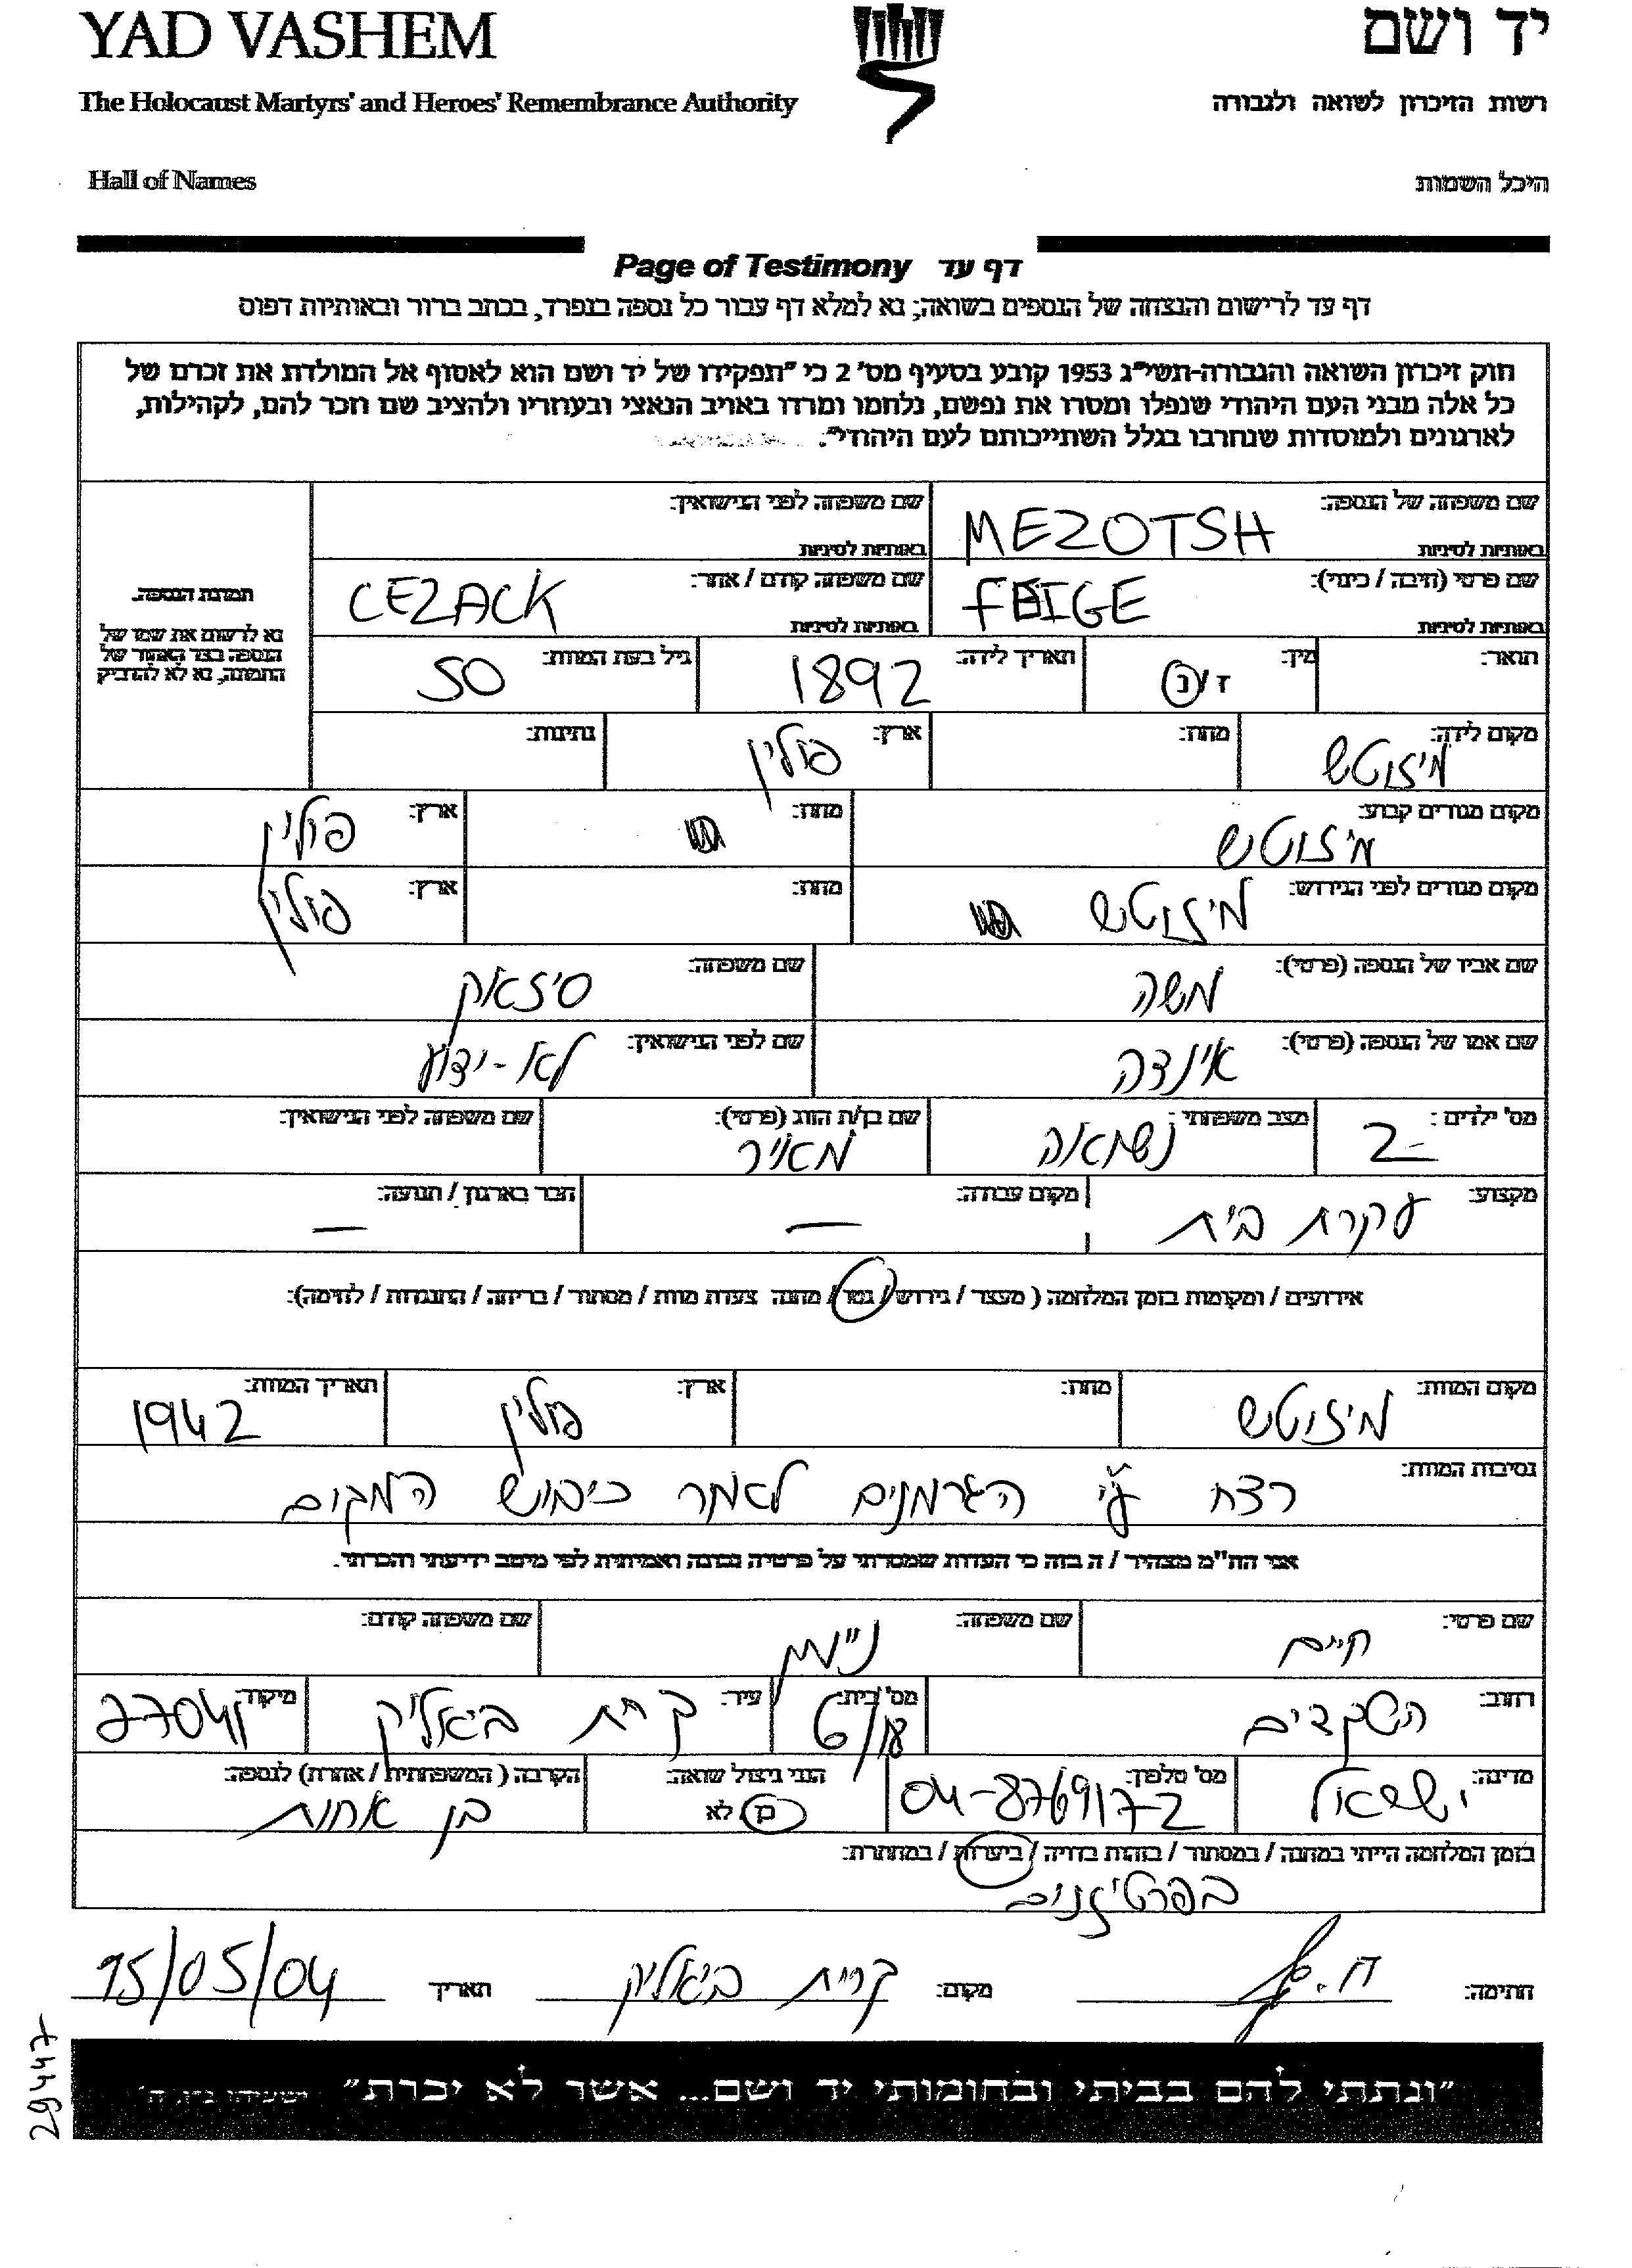 YAD VASHEM
יד ושם
The Holocaust Martyrs' and Heroes' Remembrance Authority
רשות הזיכרון לשואה ולגבורה
Hall of Names
היכל השמות
Page of Testimony דף עד
דף עד לרישום והנצחה של הנספים בשואה; נא למלא דף עבור כל נספה בנפרד, בכתב ברור ובאותיות דפוס
חוק זיכרון השואה והגבורה-תשי"ג 1953 קובע בסעיף מס' 2 כי "תפקידו של יד ושם הוא לאסוף אל המולדת את זכרם של
כל אלה מבני העם היהודי שנפלו ומסרו את נפשם, נלחמו ומרדו באויב הנאצי ובעוזריו ולהציב שם וזכר להם, לקהילות,
לארגונים ולמוסדות שנחרבו בגלל השתייכותם לעם היהודי".
שם משפחה של הנספה: MEZOTSH באותיות לטיניות
שם משפחה לפני הנישואין: באותיות לטיניות
שם פרטי (חיבה / כינוי): FEIGE באותיות לטיניות
שם משפחה קודם / אחר: CEZACK באותיות לטיניות
תמונת הנספה.
נא לרשום את שמו של
הנספה בצד האחורי של
התמונה, נא לא להדביק
תואר: מין: ז / נ תאריך לידה: 1892 גיל בעת המוות: 50
מקום לידה: מיזוטש מחוז: ארץ: פולין נתינות:
מקום מגורים קבוע: מיזוטש מחוז: ארץ: פולין
מקום מגורים לפני הגירוש: מיזוטש מחוז: ארץ: פולין
שם אביו של הנספה (פרטי): משה שם משפחה: סיזאק
שם אמו של הנספה (פרטי): אינדה שם לפני הנישואין: לא-ידוע
מס' ילדים: 2 מצב משפחתי: נשואה שם בן/ת הזוג (פרטי): מאיר שם משפחה לפני הנישואין:
מקצוע: עקרת בית מקום עבודה: — חבר בארגון / תנועה: —
אירועים / ומקומות בזמן המלחמה ( מעצר / גירוש / גטו / מחנה צעדת מוות / מסתור / בריחה / התנגדות / לחימה):
מקום המוות: מיזוטש מחוז: ארץ: פולין תאריך המוות: 1942
נסיבות המוות: רצח ע"י הגרמנים לאחר כיבוש המקום
אני הח"מ מצהיר / ה בזה כי העדות שמסרתי על פרטיה נכונה ואמיתית לפי מיטב ידיעתי והכרתי.
שם פרטי: חיים שם משפחה: ניימן שם משפחה קודם:
רחוב: השקדים מס' בית: 6/18 עיר: קרית ביאליק מיקוד: 27041
מדינה: ישראל מס' טלפון: 04-8769172 הנני ניצול שואה: כן לא הקרבה ( המשפחתית / אחרת) לנספה: בן אחות
בזמן המלחמה הייתי במחנה / במסתור / בזהות בדויה / ביערות / במחתרת:
בפרטיזנים
חתימה: מקום: קרית ביאליק תאריך 15/05/04
"ונתתי להם בביתי ובחומותי יד ושם... אשר לא יכרת" ישעיהו נ"ו, ה'
29447